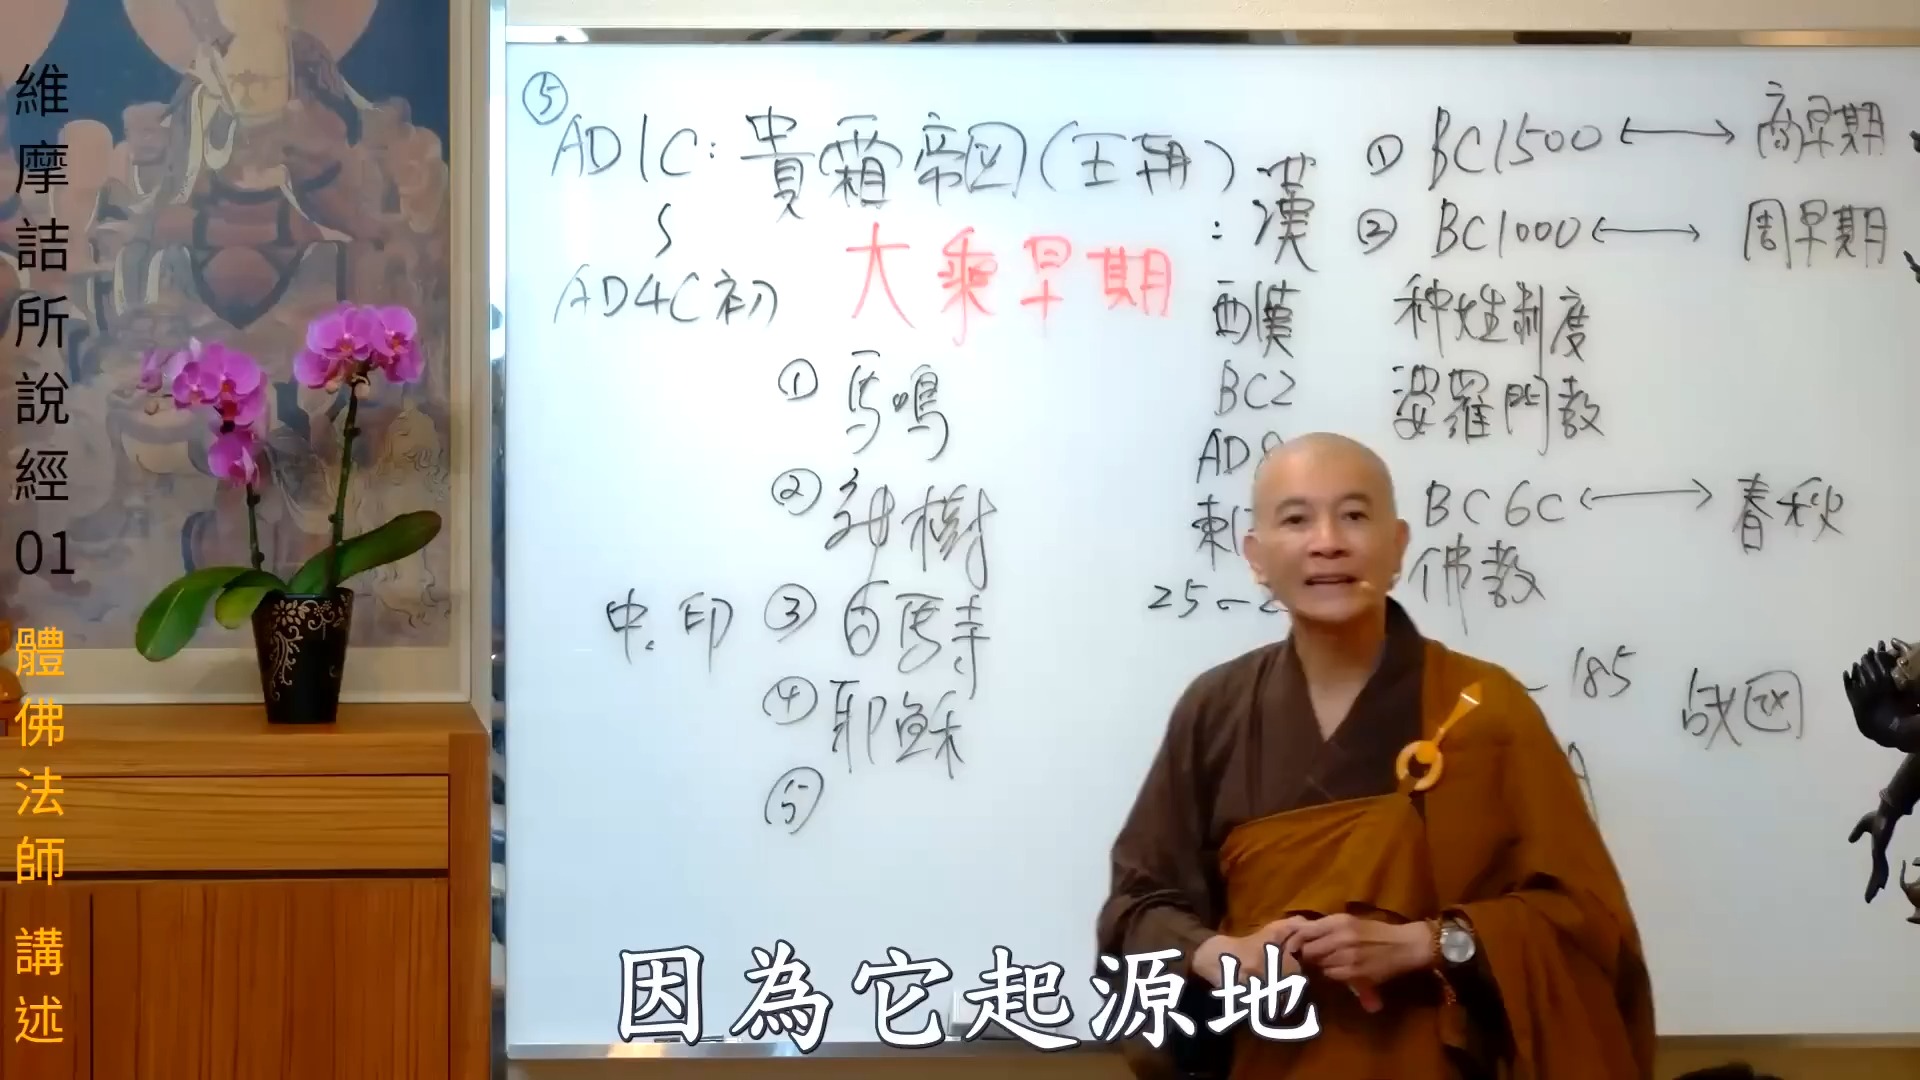 維摩詰所說經01 體佛法師 講述
⑤
AD1C: 貴霜帝国(王朝)
大乘早期
AD4C初
① 馬鳴
②
樹
中、印 ③ 白馬寺
④ 耶穌
⑤
: 漢
西漢
BC2
AD
東
25~
① BC1500 ↔ 商早期
② BC1000 ↔ 周早期
种姓制度
婆羅門教
BC6C ↔ 春秋
佛教
185 战国
因為它起源地